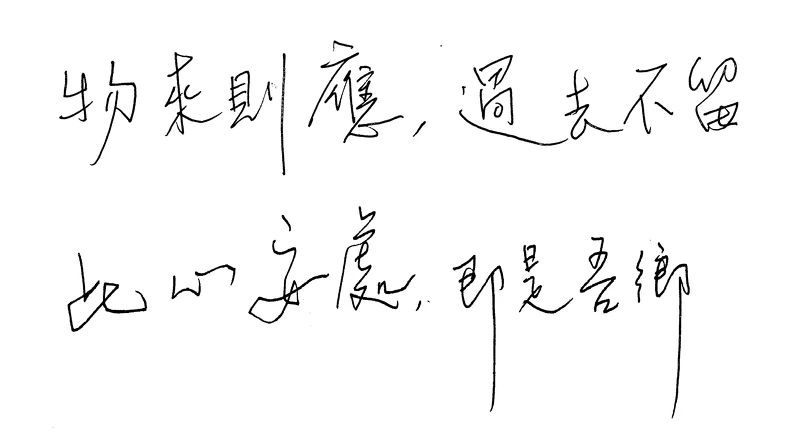 物來則應，過去不留
此心安處，即是吾鄉